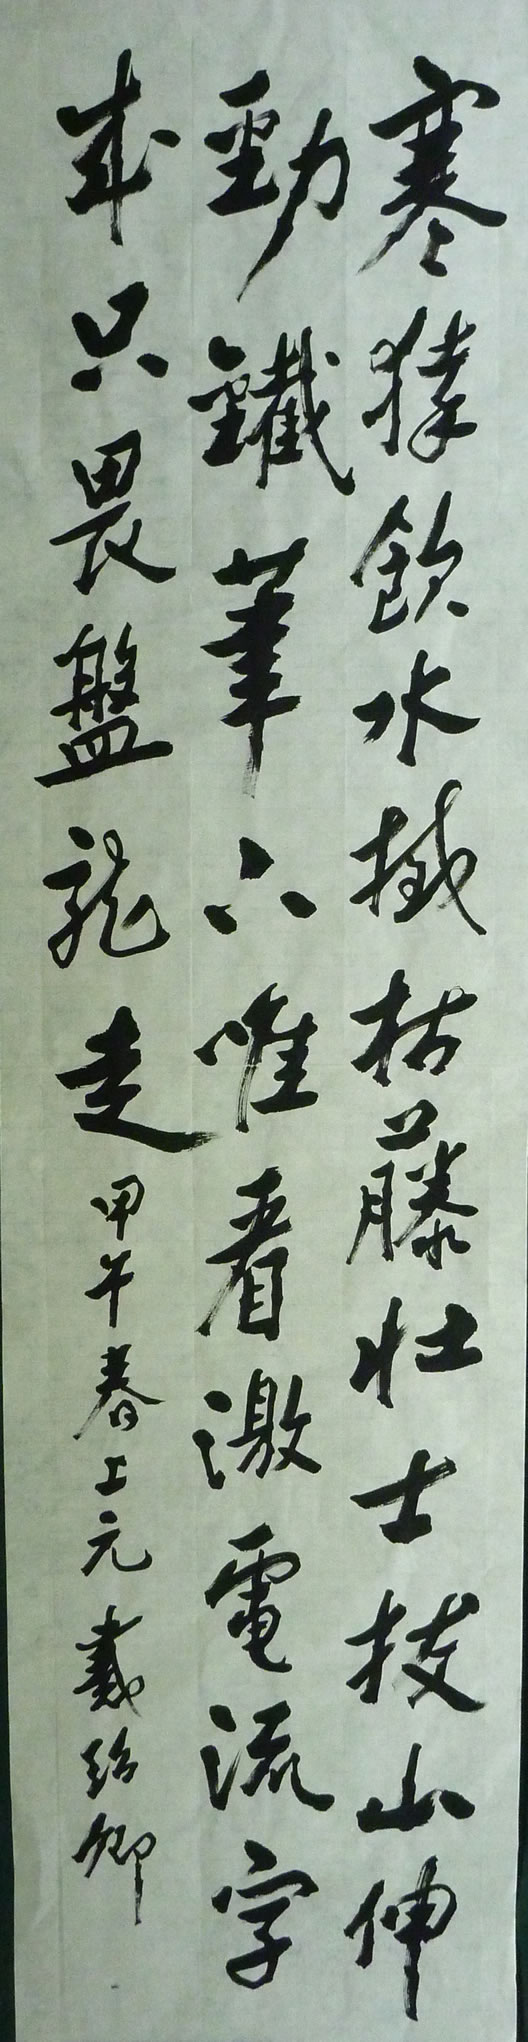 寒猿飲水撼枯藤壮士拔山伸
勁鐵筆下唯看激電流字
成只畏盤龍走甲午春上元戴紹卿